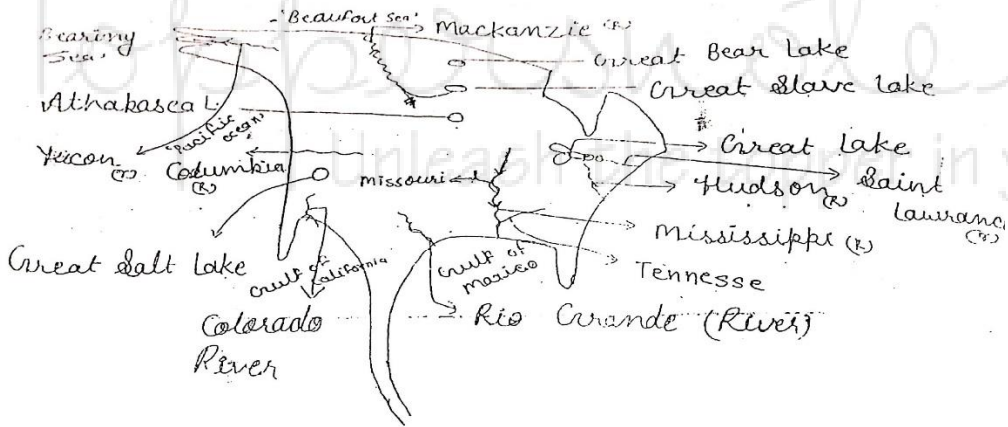 'Beaufort Sea'
Mackanzie (R)
Bearing
Sea'
Great Bear Lake
Great Slave Lake
Athabasca L.
Pacific
ocean
Great Lake
Yucon
(r)
Columbia
(R)
Missouri
Hudson (R)
Saint
Lawranc
(r)
Mississippi (R)
Great Salt Lake
Gulf of
California
Gulf of
Maxico
Tennesse
Colorado
River
Rio Grande (River)
Unleash the topper in y